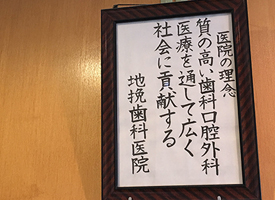 医院の理念
質の高い歯科口腔外科
医療を通して広く
社会に貢献する
地挽歯科医院